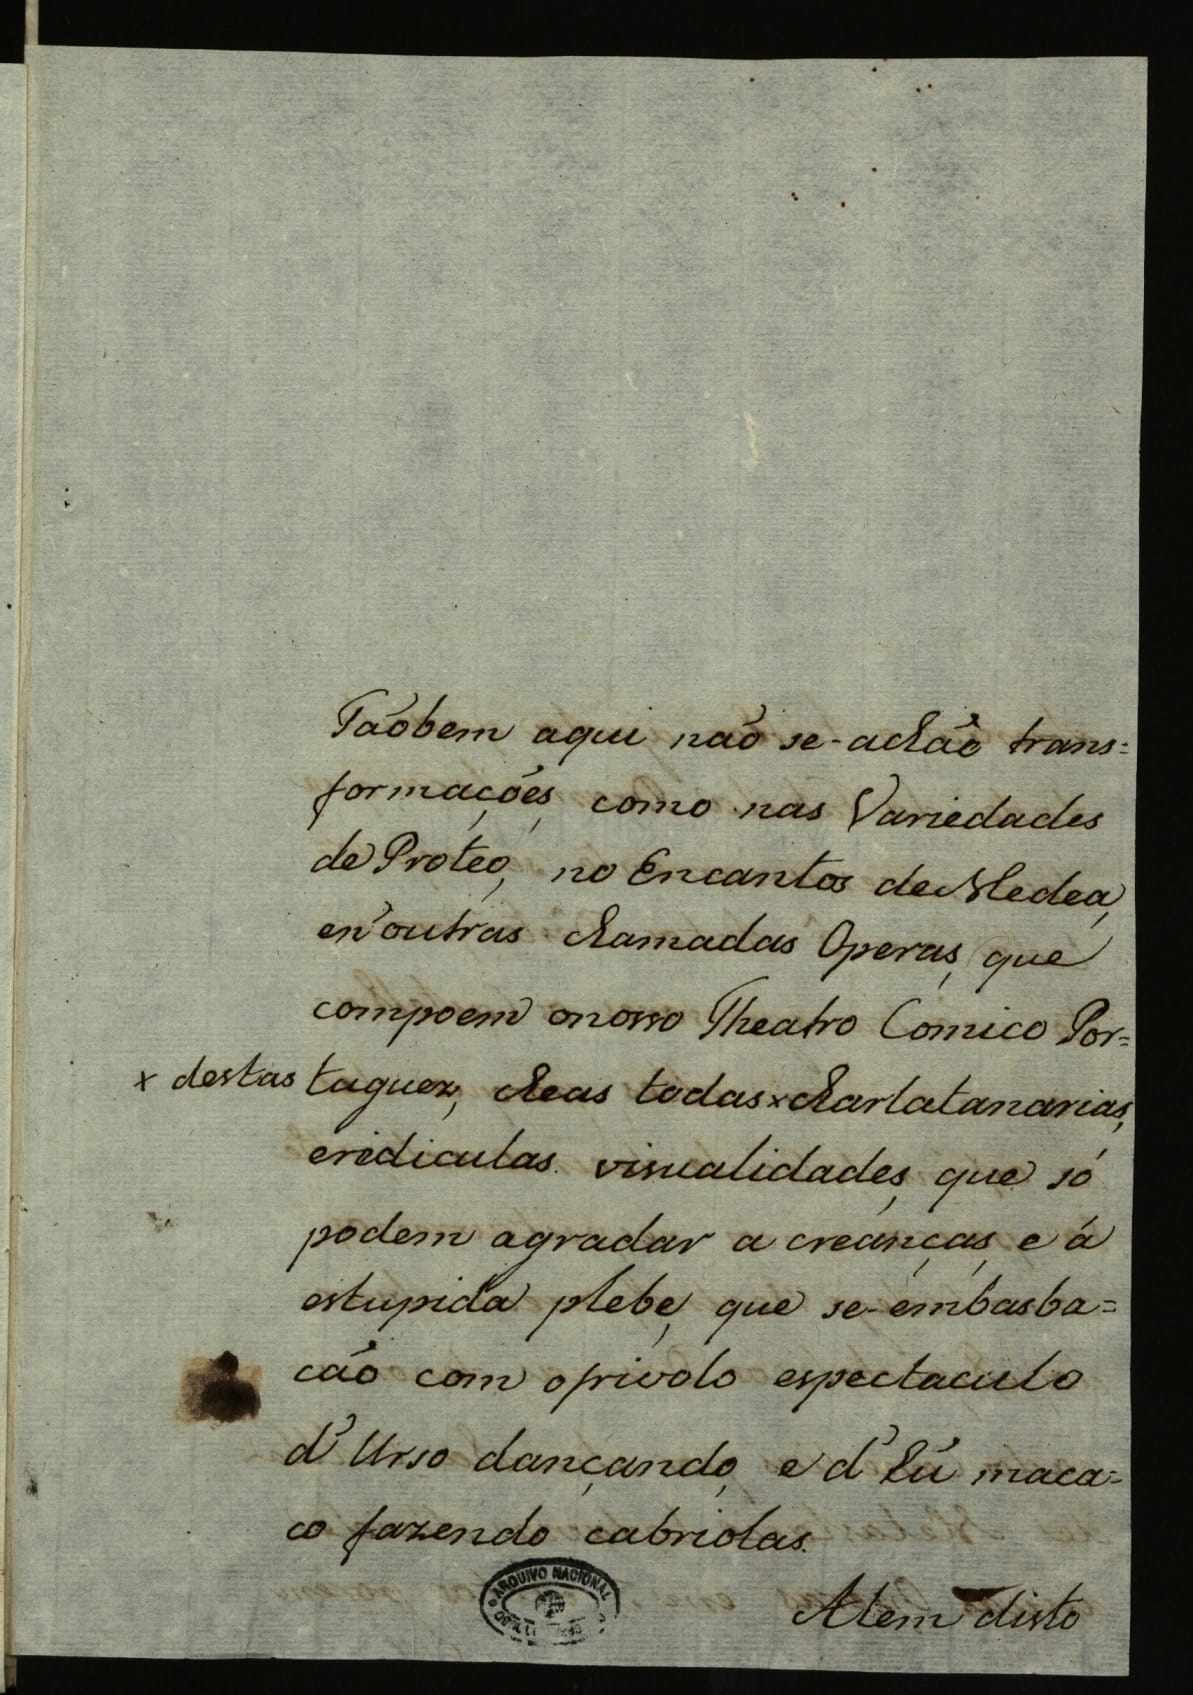 Tãobem aqui não se-achão trans=
formações, como nas Variedades
de Proteo, no Encantos de Medea,
en'outras chamadas Operas, que
compoem onosso Theatro Comico Por=
x destas
tuguez, cheas todas x charlatanarias,
eridiculas visualidades, que só
podem agradar a creanças, e á
estupida plebe, que se-embasba=
cão com ofrivolo espectaculo
d'Urso dançando, e d'hú maca=
co fazendo cabriolas.
ARQUIVO NACIONAL
Alem disto